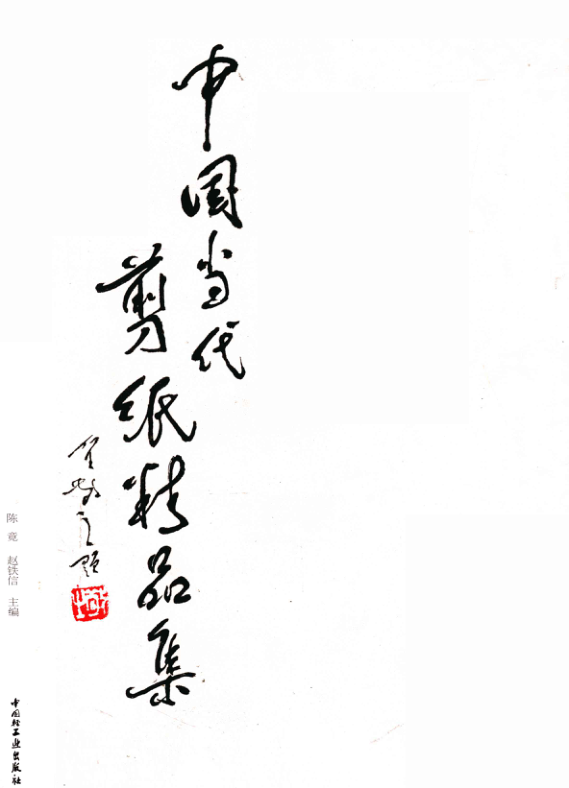 中国当代
剪纸精品集
陈竟 赵铁信 主编
中国轻工业出版社